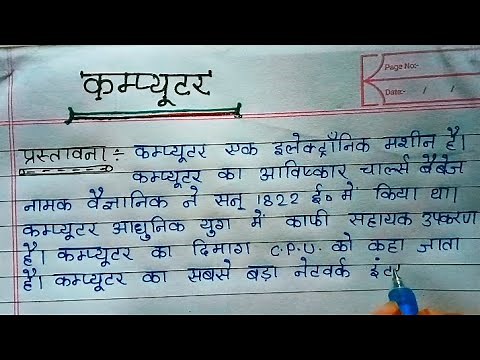 Page No:-
Date:- / /
कम्प्यूटर
प्रस्तावना :- कम्प्यूटर एक इलेक्ट्रॉनिक मशीन है।
कम्प्यूटर का आविष्कार चार्ल्स बैबेज
नामक वैज्ञानिक ने सन् 1822 ई० में किया था।
कम्प्यूटर आधुनिक युग में काफी सहायक उपकरण
है। कम्प्यूटर का दिमाग C.P.U. को कहा जाता
है। कम्प्यूटर का सबसे बड़ा नेटवर्क इंटर